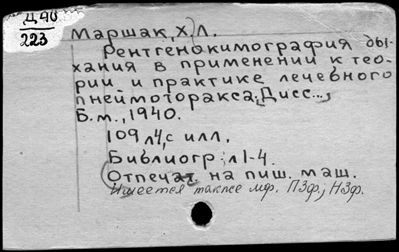 Д40
223
Маршак, Х. Л.
Рентгенокимография ды-
хания в применении к тео-
рии и практике лечебного
пнеймоторакса; Дисс...,
Б.м., 1940.
109 л., с илл.
Библиогр: л 1-4.
Отпечат. на пиш. маш.
Имеется также мф. ПЗф., НЗф.